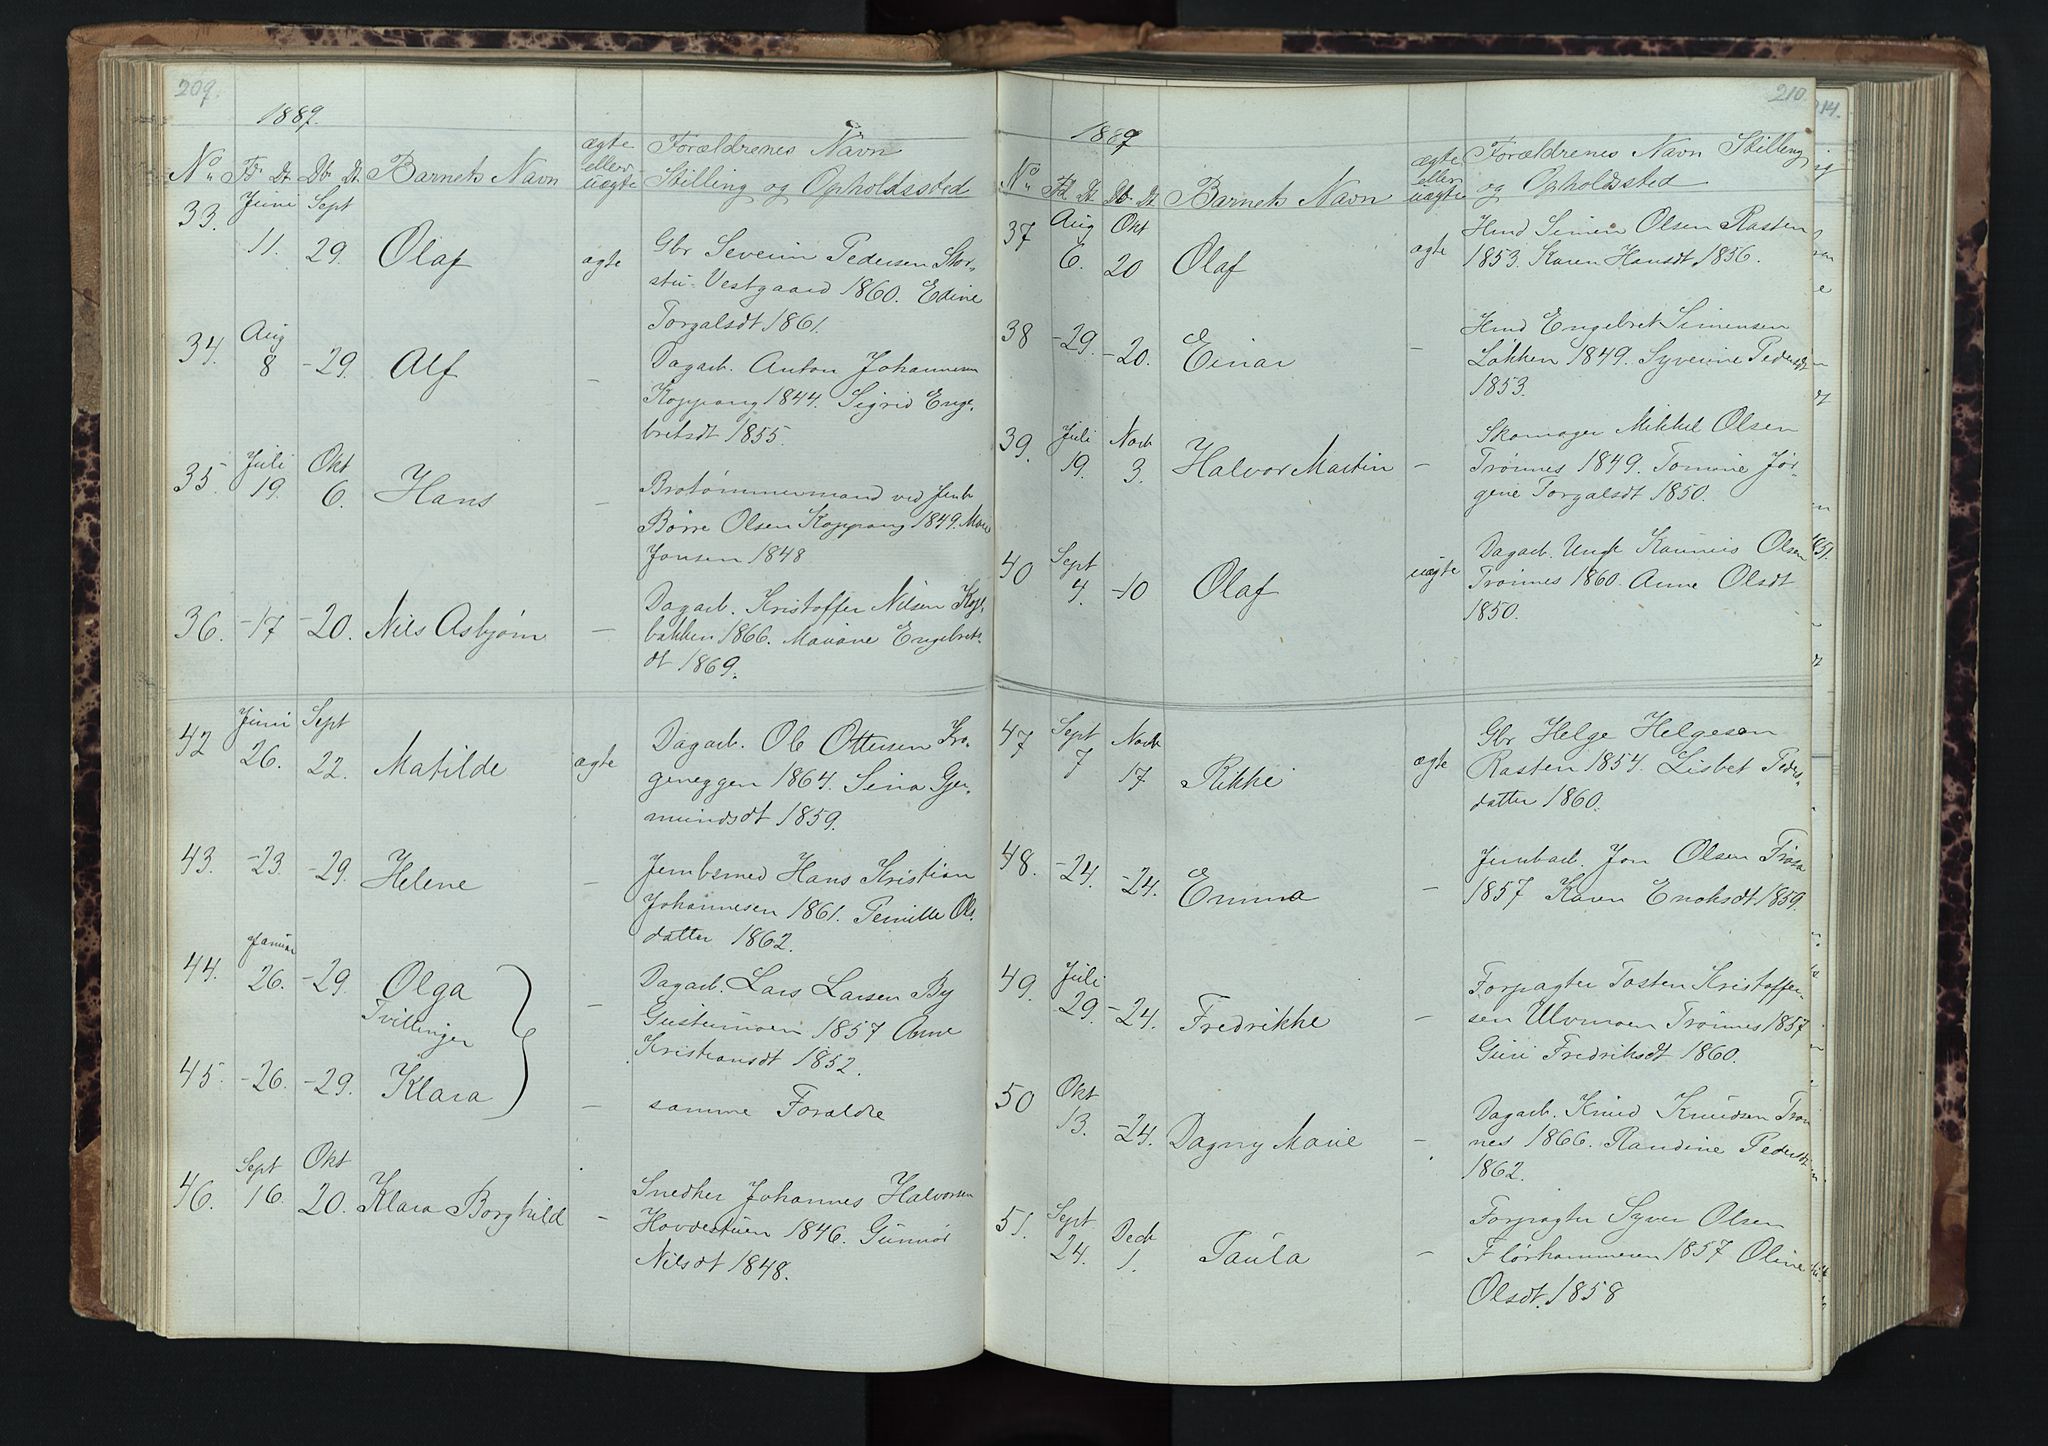 209.
1887.
No Fd. Dt. Db. Dt. Barnets Navn ægte eller uægte Forældrenes Navn
Stilling og Opholdssted
33. Juni 11. Sept 29. Olaf ægte Gbr Severin Pedersen Stor-
stu-Vestgaard 1860. Edine
Torgalsdt 1861.
34. Aug 8 -29. Alf - Dagarb. Anton Johannesen
Koppang 1844. Sigrid Enge-
bretsdt 1855.
35. Juli 19. Okt 6. Hans - Brotømmermand ved Jernb
Børre Olsen Koppang 1849.
Jonsen 1848
36. -17 -20. Nils Asbjørn - Dagarb. Kristoffer Nilsen
bakken 1866. Mariane Engebrets-
dt 1869.
42 Juni 26. Sept 22. Matilde ægte Dagarb. Ole Ottersen Kro-
geneggen 1864. Sina Gjer-
mundsdt 1859.
43. -23. -29. Helene - Jernbsmed Hans Kristian
Johannesen 1861. Pernille Ols-
datter 1862.
44. Januar 26. -29. Olga - Dagarb. Lars Larsen By
Tvillinger
Gustumoen 1857 Anne
Kristiansdt 1852.
45. -26. -29. Klara - samme Forældre
46. Sept 16. Okt 20. Klara Borghild - Snedker Johannes Halvorsen
Hovdestuen 1846. Gunnor
Nilsdt 1848.
210.
1887
No Fd Dt. Db Dt Barnets Navn ægte eller uægte Forældrenes Navn Stilling
og Opholdssted
37 Aug 6. Okt 20 Olaf ægte Hmd Simen Olsen Rasten
1853. Karen Hansdt 1856.
38 -29. -20. Einar - Hmd Engebret Simensen
Løkken 1849. Syverine Pedersdt
1853.
39. Juli 19. Novb 3. Halvor Martin - Skomager Mikkel Olsen
Trønnes 1849. Tomine Jør-
gine Torgalsdt 1850.
40 Sept 4. -10 Olaf uægte Dagarb. Ungk Olsen
Trønnes 1860. Anne Olsdt
1850.
47 Sept 7 Novb 17 Rikke ægte Gbr Helge Helgesen
Rasten 1854. Lisbet Peders-
datter 1860.
48. -24. -24. Emma - Jernbarb. Jon Olsen
1857 Karen Enoksdt 1859.
49. Juli 29. -24. Fredrikke - Forpagter Tosten Kristoffer-
sen Ulvmoen Trønnes 1857
Guri Fredriksdt 1860.
50 Okt 13. -24. Dagny Marie - Dagarb. Knud Knudsen Trøn
nes 1866. Randine Pedersdt
1862.
51. Sept 24. Decb 1. Paula - Forpagter Syver Olsen
Florhammeren 1857 Oline
Olsdt. 1858
214.